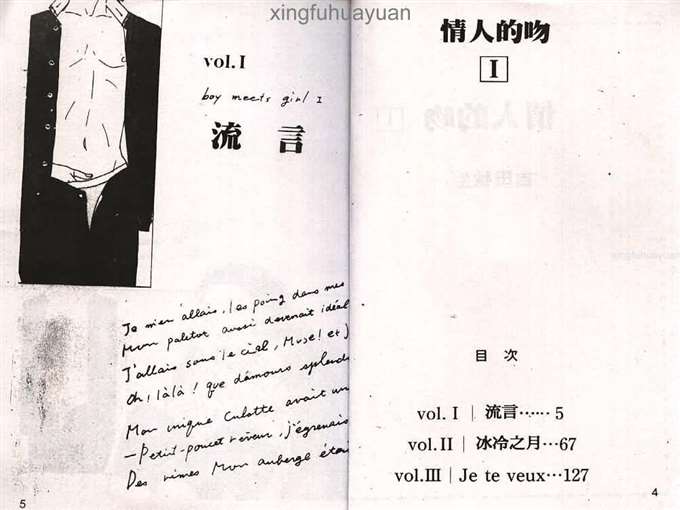 xingfuhuayuan
情人的吻
I
目 次
vol. I | 流言…… 5
vol.II | 冰冷之月…67
vol.III | Je te veux…127
4
vol. I
boy meets girl I
流言
Je m'en allais, les poing dans mes
Mon paletot aussi devenait idéal
J'allais sous le ciel, Muse! et j
Oh, làlà! que d'amours splend
Mon unique Culotte avait un
—Petit-poucet rêveur, j'égrenais
Des rimes Mon auberge étai
5